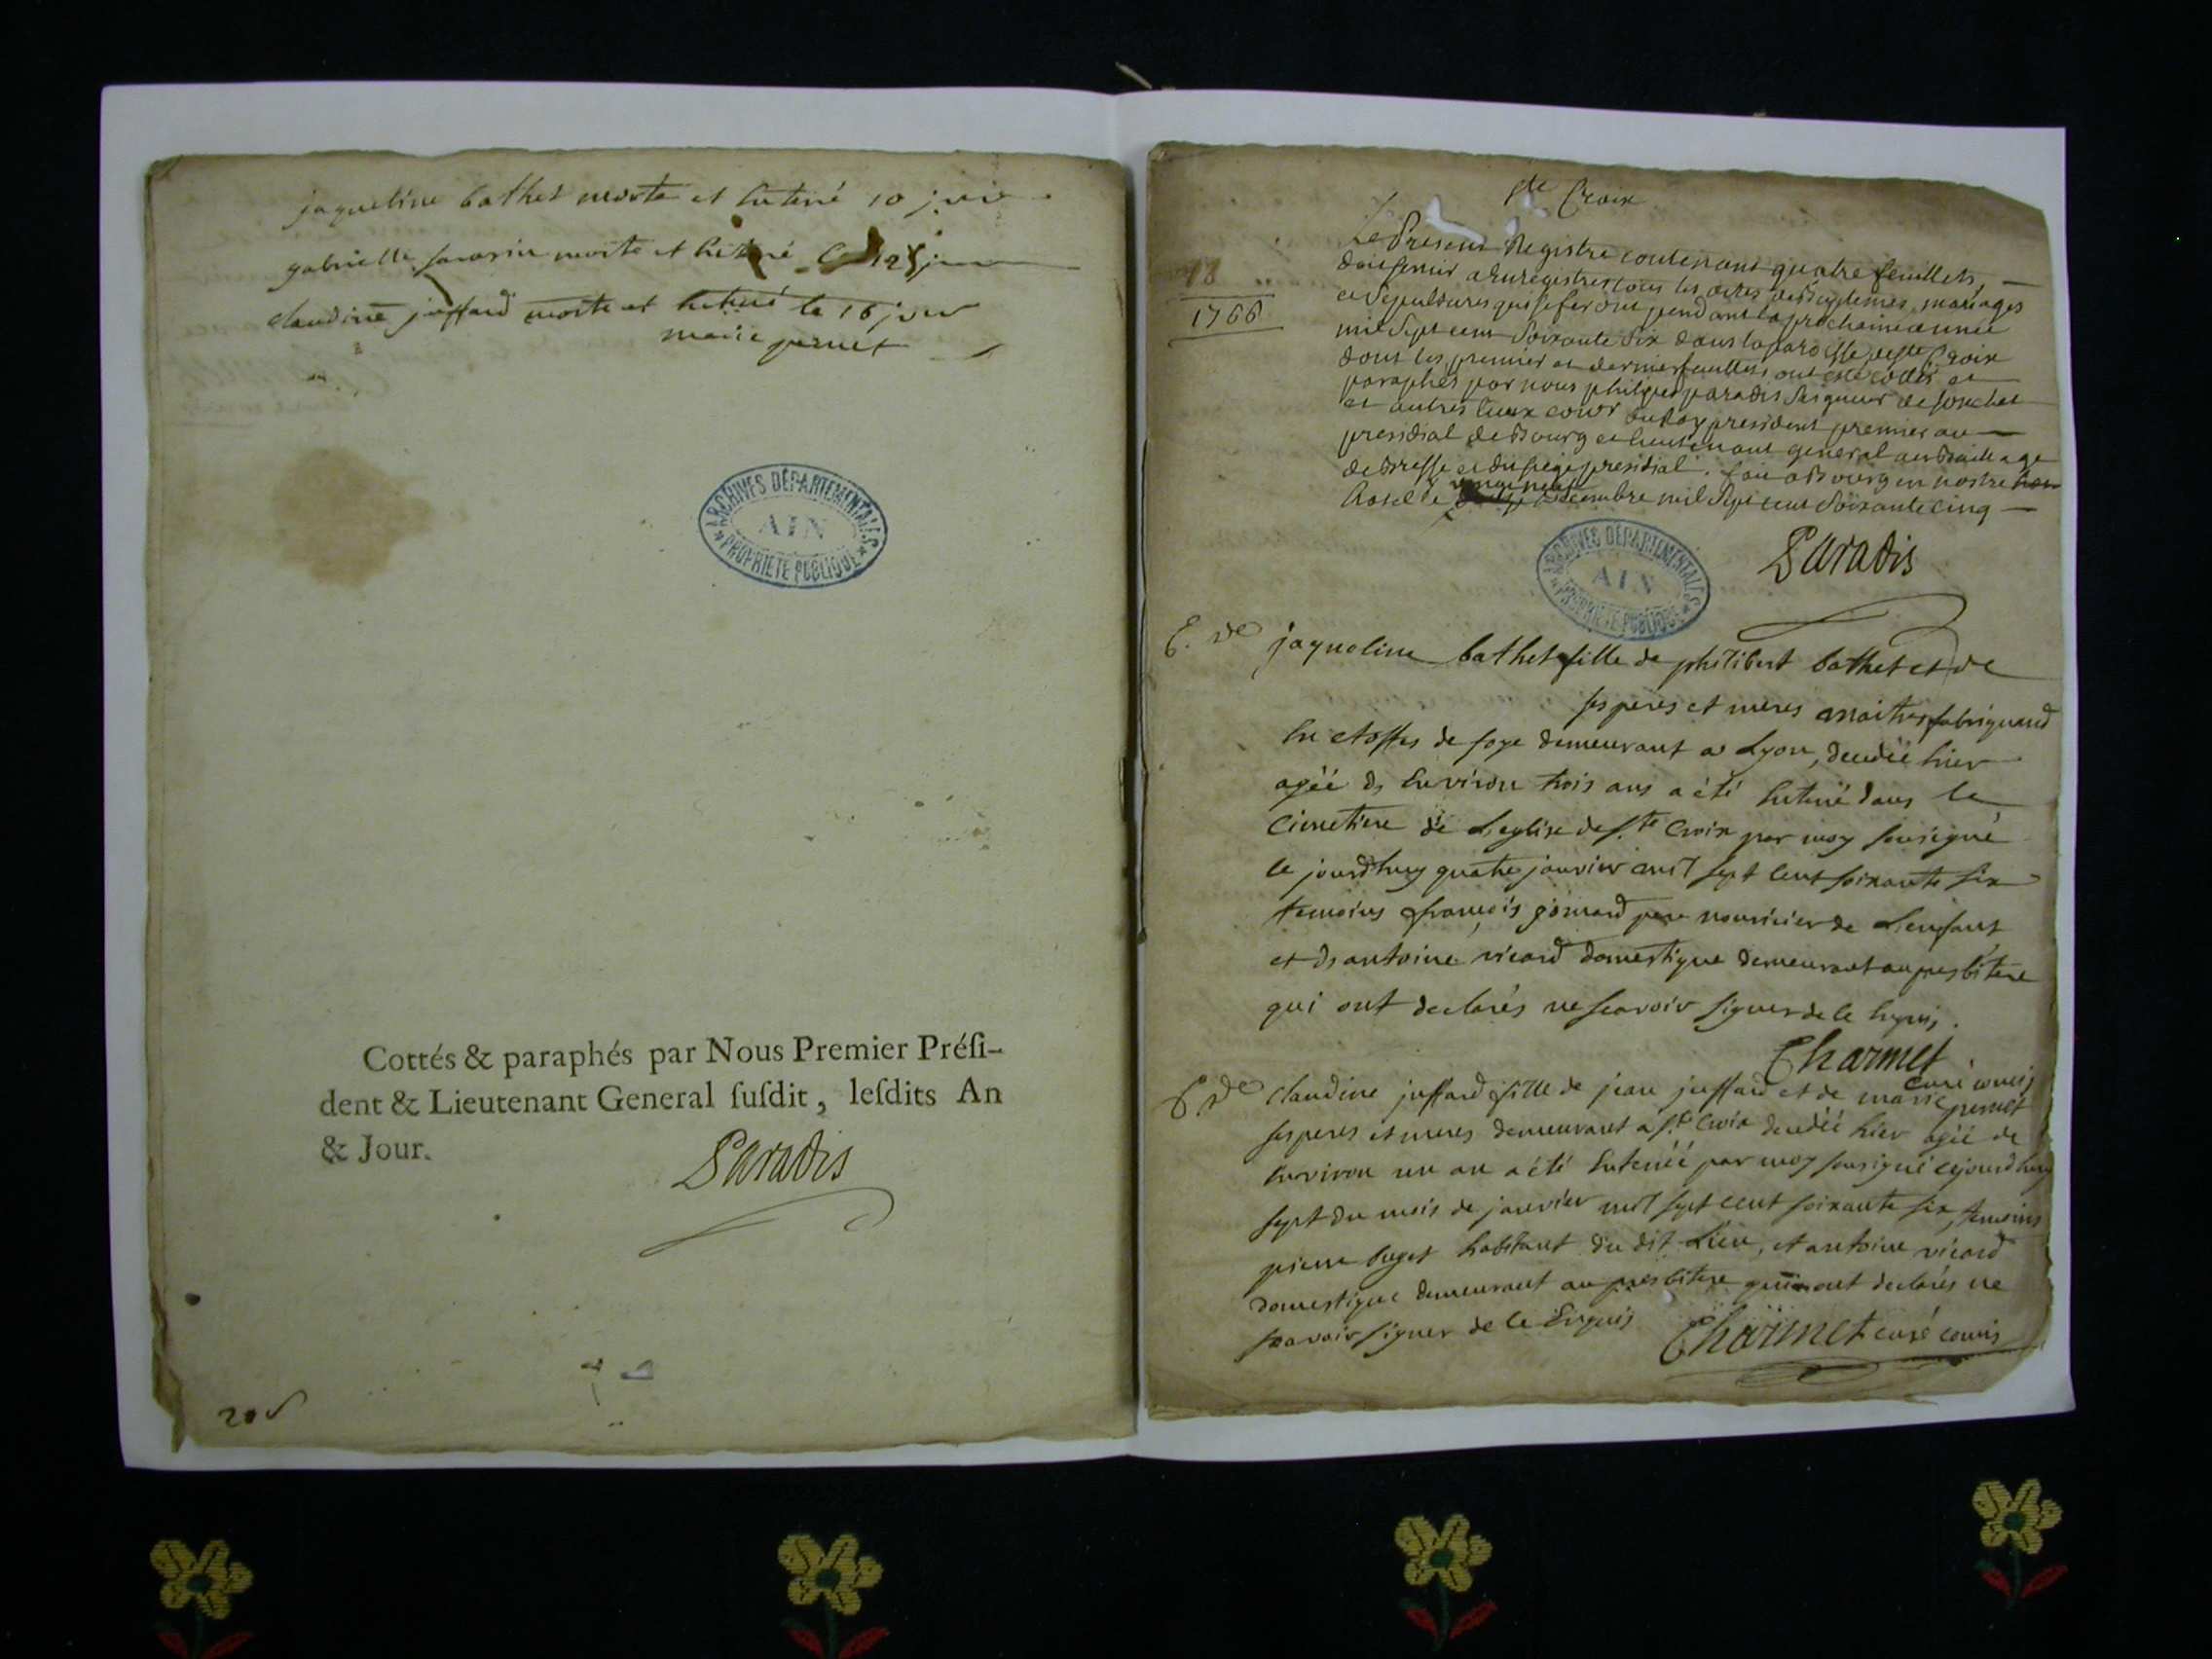 jaqueline bathet morte et Enterré 10 janv
gabrielle savarin morte et Enterré le 12 janv
claudine juffard morte et Enterré le 16 janv
marie pernet
ARCHIVES DÉPARTEMENTALES
AIN
PROPRIÉTÉ PUBLIQUE
Cottés & paraphés par Nous Premier Préſi-
dent & Lieutenant General ſuſdit, leſdits An
& Jour.
Paradis
Ste Croix
1766
Le Present Registre contenant quatre feuillets,
doit servir a Enregistrer tous les actes de Baptemes, mariages
et sepultures qui se feront pendant la prochaine année
mil sept cent soixante six dans la paroisse de Ste Croix
dont les premier et dernier feuillets ont esté cottés et
paraphés par nous philipes paradis seigneur de
et autres lieux conr du Roy president premier au
presidial de Bourg et lieutenant general au Bailliage
de Bresse et du siege presidial. fait a Bourg en nostre
hotel le decembre mil sept cent soixante cinq
Paradis
ARCHIVES DÉPARTEMENTALES
AIN
PROPRIÉTÉ PUBLIQUE
E. de jaqueline bathet fille de philibert bathet et de
ses peres et meres maitres fabriquand
En etoffes de soye demeurant a Lyon, decedéé hier
agéé d'Environ trois ans a été Enterré dans le
Cimetiere de L'eglise de Ste Croix par moy sousigné
ce jourdhuy quatre janvier mil sept cent soixante six
temoins françois gomard pere nouricier de L'enfant
et d'antoine vicard domestique demeurant au presbitere
qui ont declarés ne scavoir signer de ce Enquis.
Charmet
curé comis
E de claudine juffard fille de jean juffard et de marie pernet
ses peres et meres demeurant a Ste Croix decedéé hier agéé de
Environ un an a été Enterréé par moy sousigné cejourdhuy
sept du mois de janvier mil sept cent soixante six, temoins
pierre buget habitant du dit Lieu, et antoine vicard
domestique demeurant au presbitere qui ont declarés ne
scavoir signer de ce Enquis Charmet curé comis